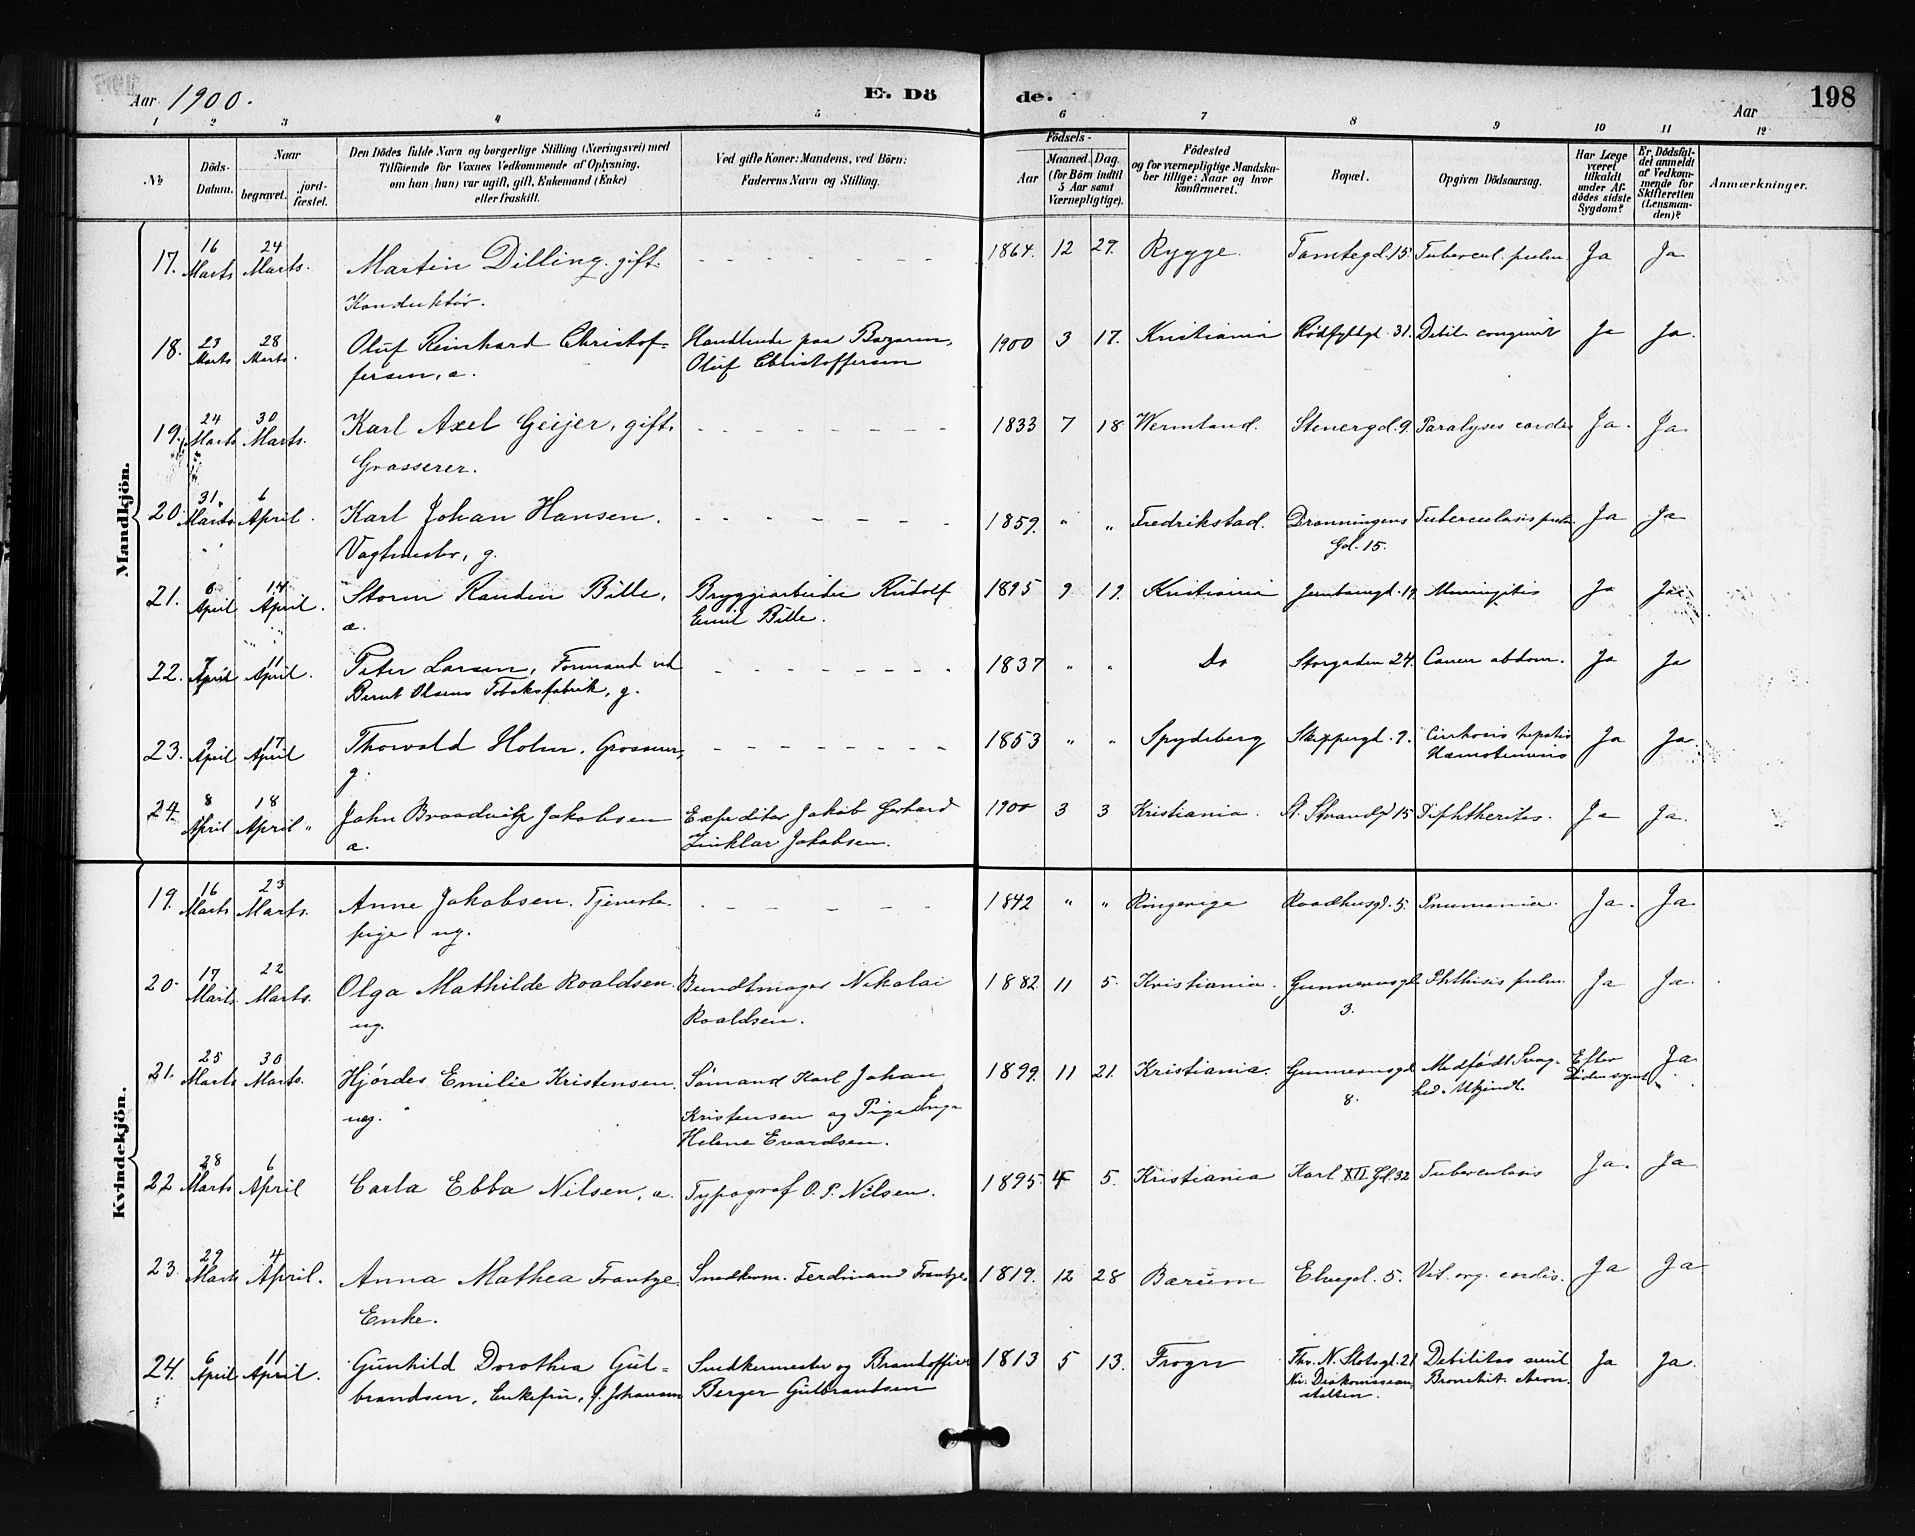 Aar 1900.
E. Dö de.
Aar
198
1 2 3 4 5 6 7 8 9 10 11 12
№
Döds-Datum.
Naar
begravet.
jord-fæstet.
Den Dödes fulde Navn og borgerlige Stilling (Næringsvei) med
Tilföiende for Voxnes Vedkommende af Oplysning,
om han (hun) var ugift, gift, Enkemand (Enke)
eller fraskilt.
Ved gifte Koner: Mandens, ved Börn:
Faderens Navn og Stilling.
Födsels-
Aar
Maaned. Dag.
(for Börn indtil
5 Aar samt
Værnepligtige).
Födested
og for værnepligtige Mandska-
ber tillige: Naar og hvor
konfirmeret.
Bopæl.
Opgiven Dödsaarsag.
Har Læge
været
tilkaldt
under Af-
dödes sidste
Sygdom?
Er Dödsfal-
det anmeldt
af Vedkom-
mende for
Skifteretten
(Lensman-
den)?
Anmærkninger.
Mandkjön.
17. 16 Marts 24 Marts. Martin Dilling. gift. 1864. 12 29. Rygge. Tomtegd. 15 Tubercul. pulm. Ja Ja
Konduktör.
18. 23 Marts 28 Marts. Oluf Reinhard Christof- Handlende paa Bazaren, 1900 3 17. Kristiania Rödfyldgt. 31. Debil. congenit Ja Ja.
fersen, a. Oluf Christoffersen
19. 24 Marts 30 Marts. Karl Axel Geijer, gift. 1833 7 18 Wermland. Stenergd. 9. Paralyses cordis Ja. Ja.
Grosserer.
20. 31 Marts 6 April. Karl Johan Hansen. 1859. " " Fredrikstad. Dronningens Tuberculosis pulm. Ja Ja
Vagtmester, g. Gd. 15.
21. 6 April 14 April. Storm Randin Bille, Bryggiarbeider Rudolf 1895 9 19. Kristiania Jernbanegd. 19 Meningitis Ja Ja
a. Emil Bille.
22. 7 April 11 April. Peter Larsen, Formand ved 1837 " " Do Storgaden 24. Cancer abdom. Ja Ja
Bernt Olsens Tobaksfabrik, g.
23. 9 April 17 April Thorvald Holm, Grosserer, 1853 " " Spydeberg Skippergd. 9. Cirrhosis hepatis Ja Ja
g. Hæmatemesis
24. 8 April 18 April " John Broadwitz Jakobsen Expeditör Jakob Gerhard 1900 3 3 Kristiania. St. Strandg 15 Diphtheritis. Ja Ja.
a. Zinklar Jakobsen.
Kvindekjön.
19. 16 Marts 23 Marts. Anne Jakobsen. Tjeneste- 1842 " " Ringerige Raadhusgd. 5. Pneumonia. Ja. Ja.
pige, ug.
20. 17 Marts 22 Marts. Olga Mathilde Roaldsen. Bundtmager Nikolai 1882 11 5. Kristiania. Gunnerusgd. Phthisis pulm. Ja Ja.
ug. Roaldsen. 3.
21. 25 Marts 30 Marts. Hjördes Emilie Kristensen. Sömand Karl Johan 1899. 11 21. Kristiania. Gunnerusgd Medfödt Svag- Efter Ja.
ug. Kristensen og Pige Inga 8. hed. Ukjendt. Döden synet
Helene Evardsen.
22 28 Marts 6 April Carla Ebba Nilsen, a. Typograf O. P. Nilsen. 1895. 4 5. Kristiania Karl XII Gd. 32 Tuberculosis Ja. Ja
23. 29 Marts 4 April. Anna Mathea Frantze. Snedkerm. Ferdinand Frantze. 1819. 12 28 Bærum Elvegd. 5. Vit. org. cordis. Ja Ja
Enke.
24. 6 April 11 April. Gunhild Dorothea Gul- Snedkermester og Brandofficer 1813 5 13. Frogn Thv. N. Slotsgd. 21 Debilitas senil Ja Ja.
brandsen, Enkefru, f. Johansen Berger Gulbrandsen Nu. Diakonissean- Bronchit. chron.
stalten.